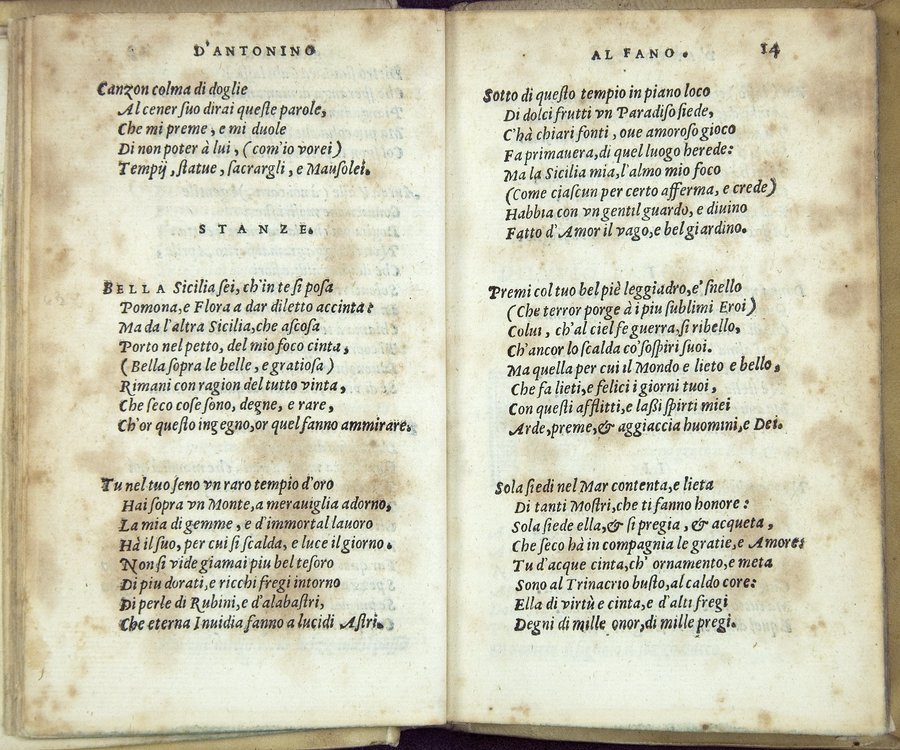 D'ANTONINO
Canzon colma di doglie
Al cener ſuo dirai queſte parole,
Che mi preme, e mi duole
Di non poter à lui, (com'io vorei)
Tempij, ſtatue, ſacrargli, e Mauſolei.
STANZE.
BELLA Sicilia ſei, ch'in te ſi poſa
Pomona, e Flora a dar diletto accinta:
Ma da l'altra Sicilia, che aſcoſa
Porto nel petto, del mio foco cinta,
(Bella ſopra le belle, e gratioſa)
Rimani con ragion del tutto vinta,
Che ſeco coſe ſono, degne, e rare,
Ch'or queſto ingegno, or quel fanno ammirare.
Tu nel tuo ſeno vn raro tempio d'oro
Hai ſopra vn Monte, a merauiglia adorno,
La mia di gemme, e d'immortal lauoro
Hà il ſuo, per cui ſi ſcalda, e luce il giorno.
Non ſi vide giamai piu bel teſoro
Di piu dorati, e ricchi fregi intorno
Di perle di Rubini, e d'alabaſtri,
Che eterna Inuidia fanno a lucidi Aſtri.
AL FANO. 14
Sotto di queſto tempio in piano loco
Di dolci frutti vn Paradiſo ſiede,
C'hà chiari fonti, oue amoroſo gioco
Fa primauera, di quel luogo herede:
Ma la Sicilia mia, l'almo mio foco
(Come ciaſcun per certo afferma, e crede)
Habbia con vn gentil guardo, e diuino
Fatto d'Amor il vago, e bel giardino.
Premi col tuo bel piè leggiadro, e' ſnello
(Che terror porge à i piu ſublimi Eroi)
Colui, ch'al ciel fe guerra, ſi ribello,
Ch'ancor lo ſcalda co' ſoſpiri ſuoi.
Ma quella per cui il Mondo e lieto e bello,
Che fa lieti, e felici i giorni tuoi,
Con queſti afflitti, e laſſi ſpirti miei
Arde, preme, & aggiaccia huomini, e Dei.
Sola ſiedi nel Mar contenta, e lieta
Di tanti Moſtri, che ti fanno honore:
Sola ſiede ella, & ſi pregia, & acqueta,
Che ſeco hà in compagnia le gratie, e Amore:
Tu d'acque cinta, ch' ornamento, e meta
Sono al Trinacrio buſto, al caldo core:
Ella di virtù e cinta, e d'alti fregi
Degni di mille onor, di mille pregi.